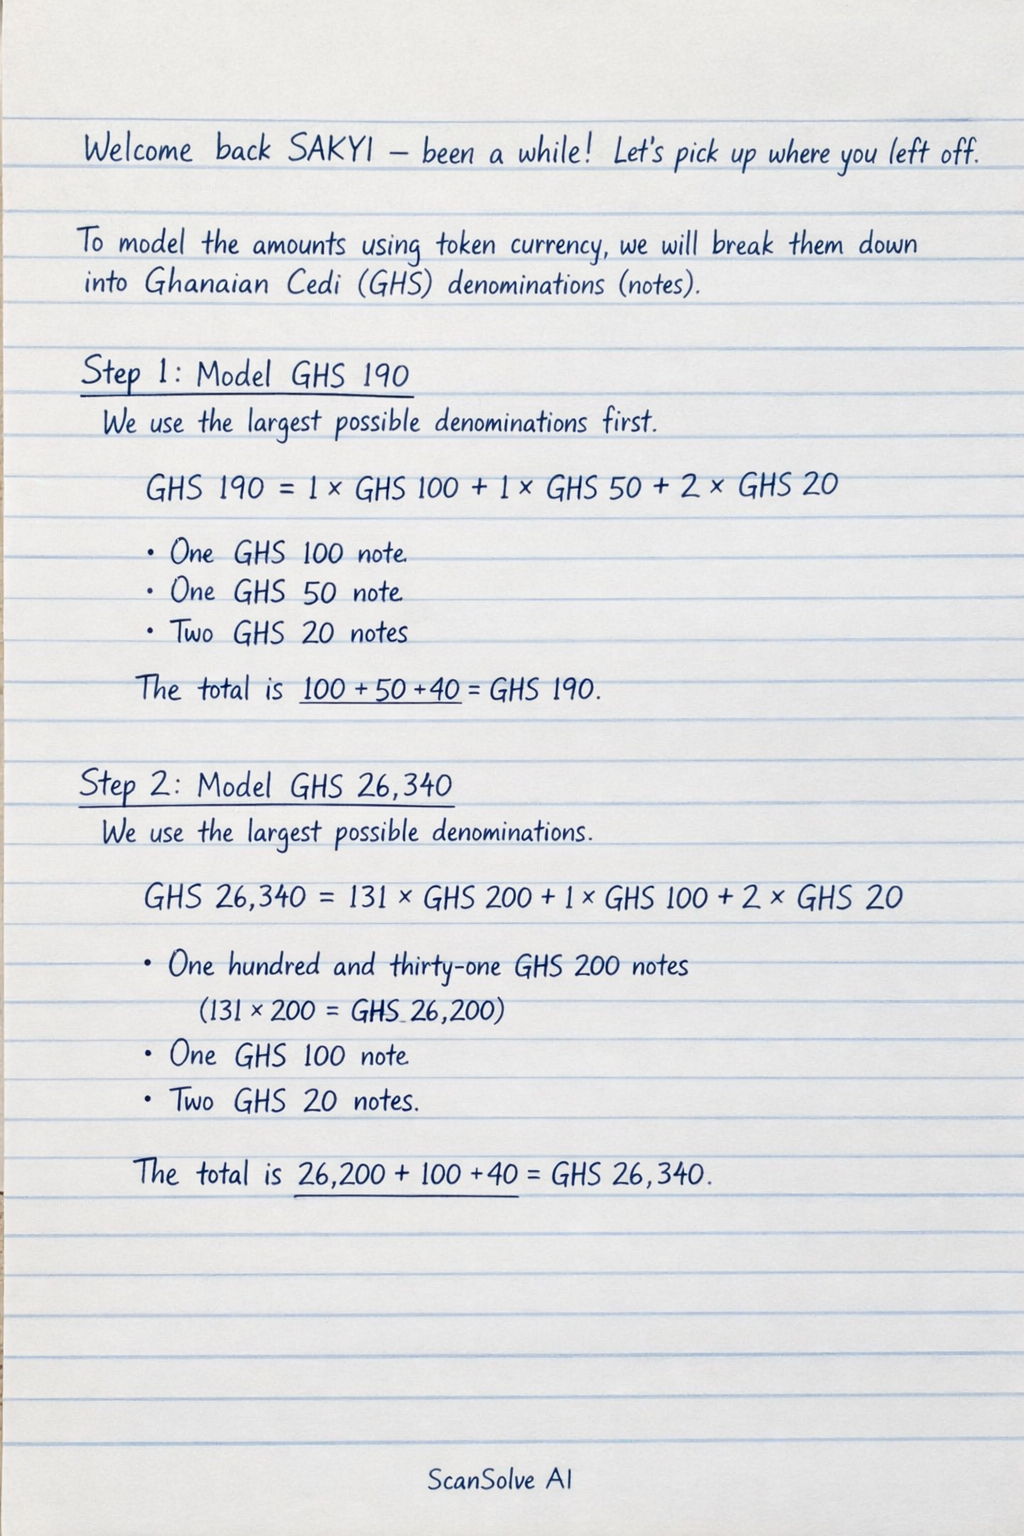 Welcome back SAKYI – been a while! Let's pick up where you left off.
To model the amounts using token currency, we will break them down
into Ghanaian Cedi (GHS) denominations (notes).
Step 1: Model GHS 190
We use the largest possible denominations first.
GHS 190 = 1 × GHS 100 + 1 × GHS 50 + 2 × GHS 20
• One GHS 100 note.
• One GHS 50 note
• Two GHS 20 notes
The total is 100 + 50 + 40 = GHS 190.
Step 2: Model GHS 26,340
We use the largest possible denominations.
GHS 26,340 = 131 × GHS 200 + 1 × GHS 100 + 2 × GHS 20
• One hundred and thirty-one GHS 200 notes
(131 × 200 = GHS 26,200)
• One GHS 100 note
• Two GHS 20 notes.
The total is 26,200 + 100 + 40 = GHS 26,340.
ScanSolve AI